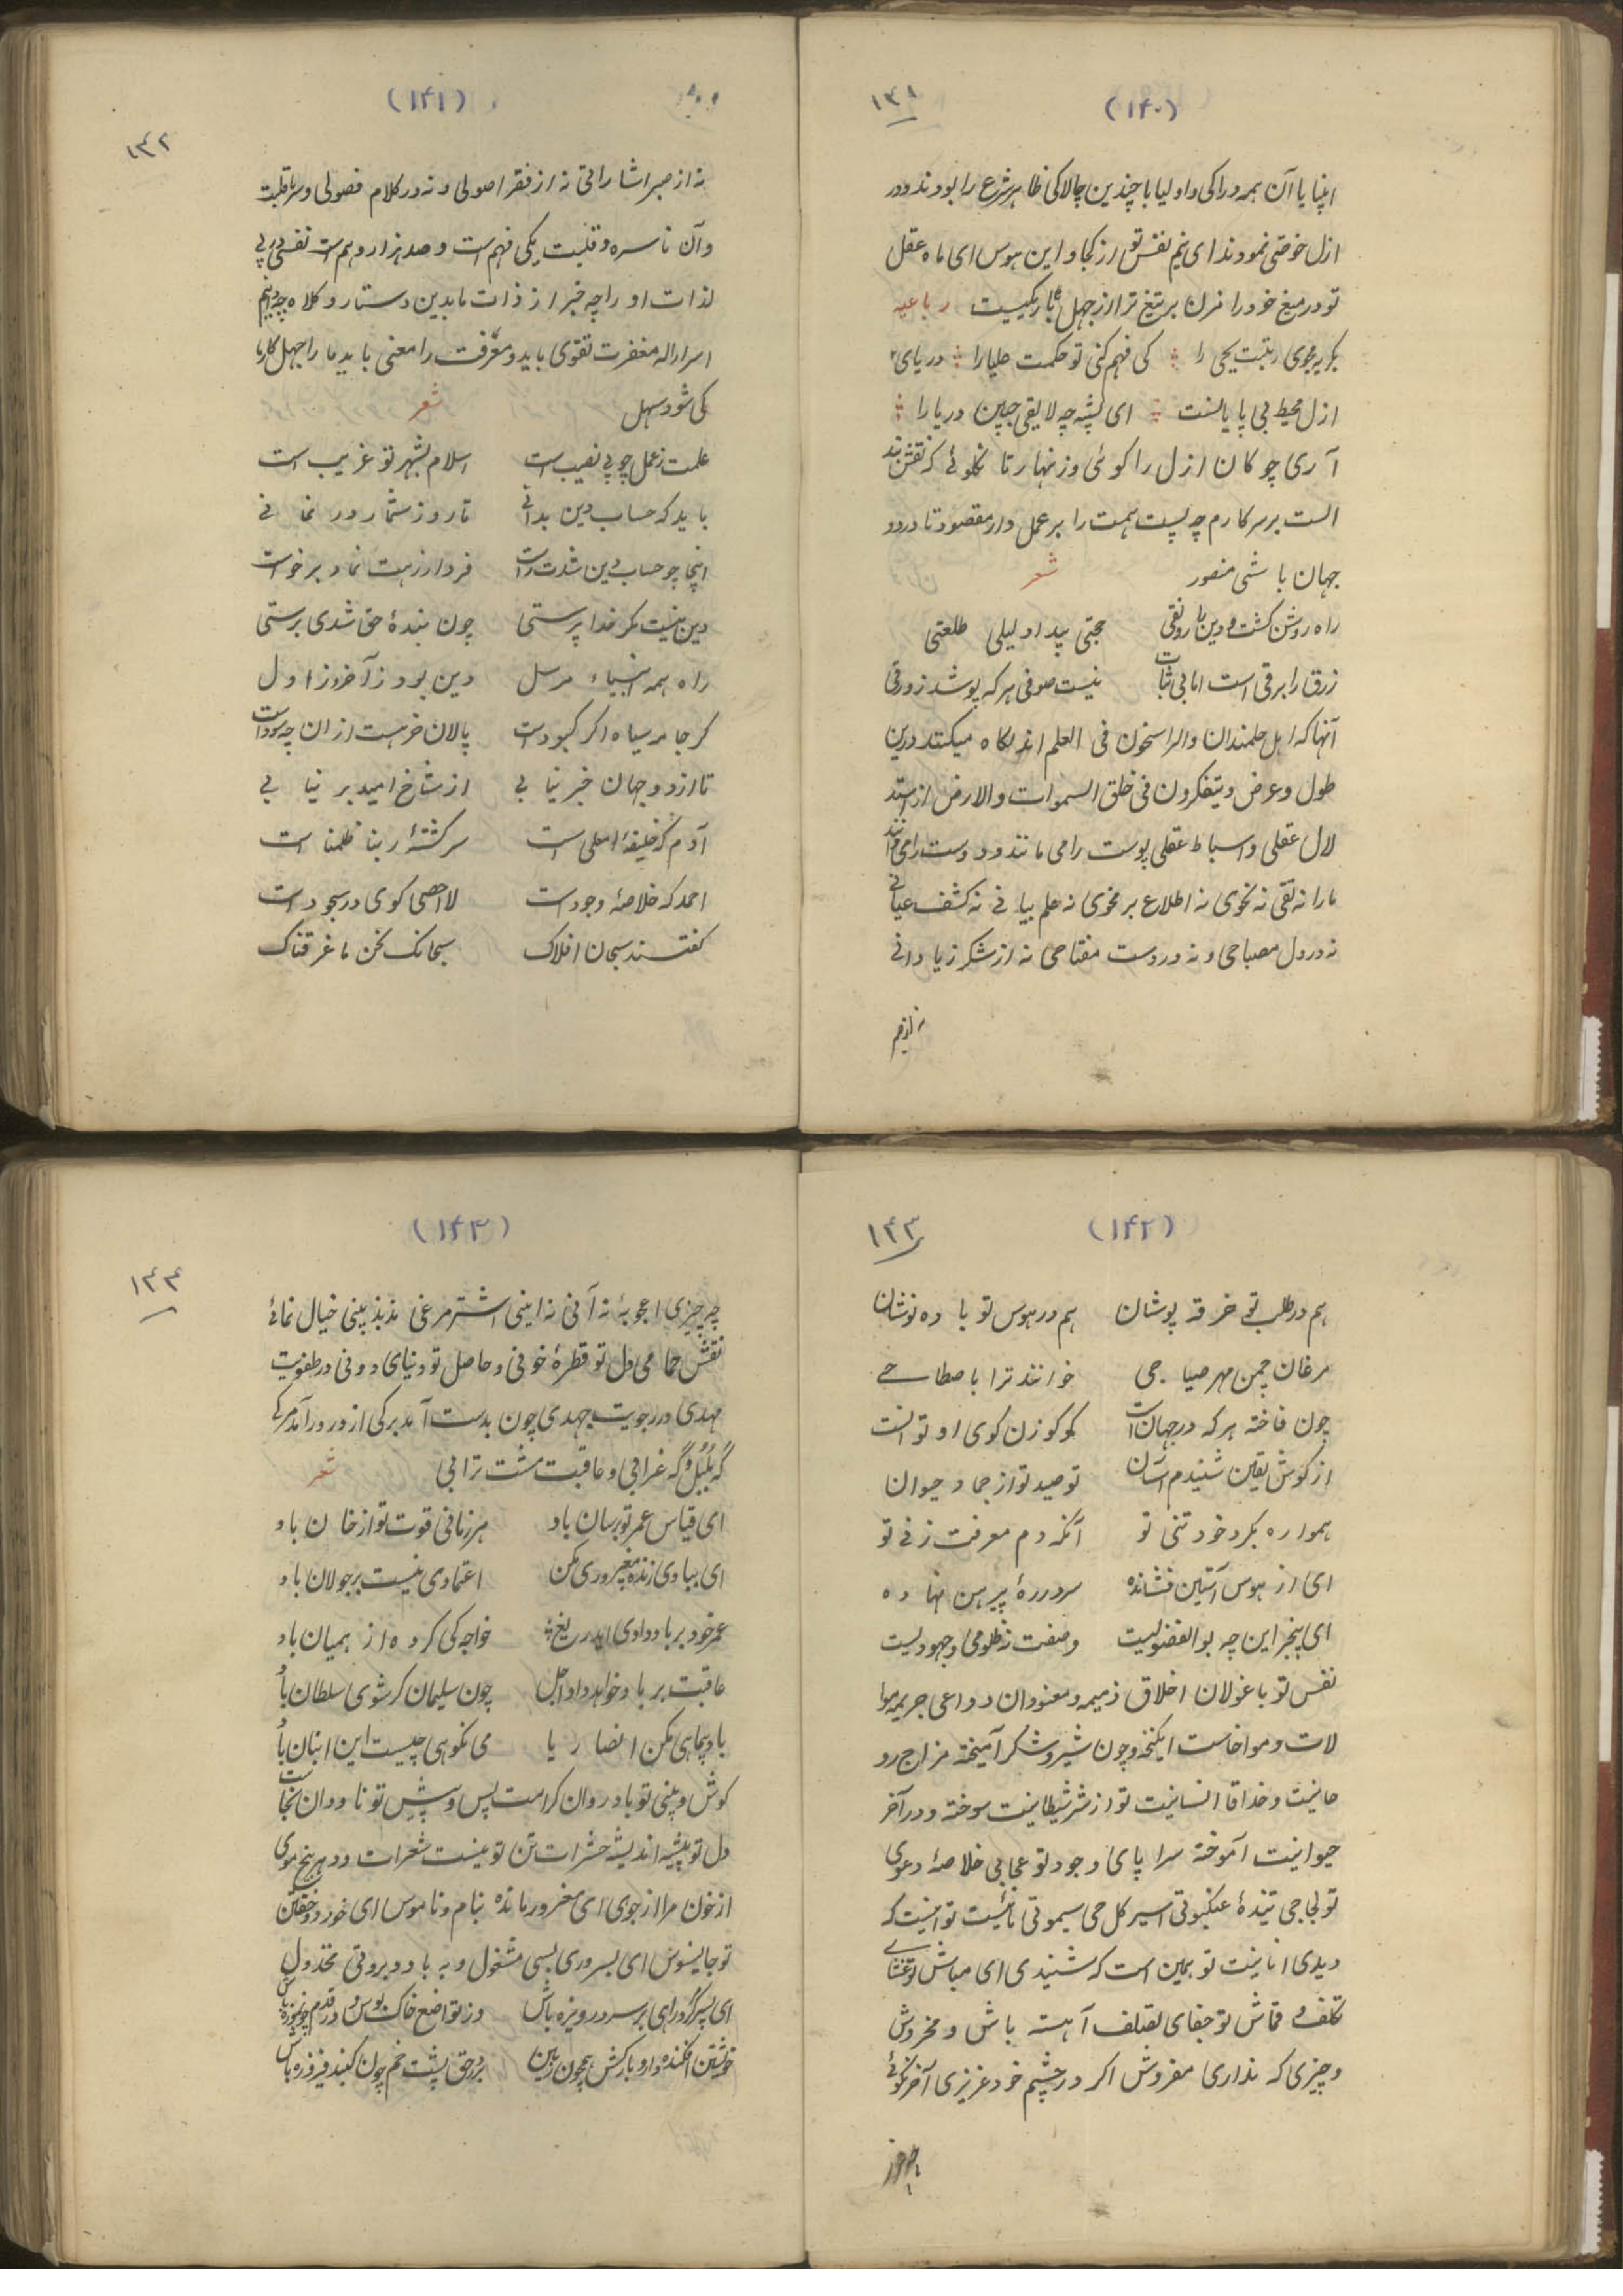 (۱۴۰)
۱۴۱
انبیا با آن همه دراکی و اولیا با چندین چالاکی ظاهر شرع را بودند و در
ازل خوضی نمودند ای نیم نفس تو از کجا و این هوس ای ماه عقل
تو در میغ خود را مزن بر تیغ ترا از جهل تاریکیست رباعیه
کی فهم کنی تو حکمت علیا را دریای
ازل محیط بی پایانست ای پشه چه لایقی چنین دریا را
آری چو کان ازل را کوئی وزنهار تا نکوئے که نقش بند
الست بر سر کارم چه پیست همت را بر عمل دار مقصود تا در دو
جهان باشی منصور شعر
راه روشن کشت و دین با رونقی حجتی پیدا دلیلی طلعتی
زرق را برقی است اما بی ثبات نیست صوفی هر که پوشد زورقی
آنها که اهل علمندان والراسخون فی العلم اند نکاه میکنند درین
طول و عرض و یتفکرون فی خلق السموات والارض از استد
لال عقلی و اسباط عقلی پوست را می مانند و دوست را می دانند
ما را نه نقی نه نحوی نه اطلاع بر محوی نه علم بیانے نه کشف عیانے
نه در دل مصباحی و نه در دست مفتاحی نه از شکر زیادانے
(۱۴۱)
۱۴۲
نه از صبر اشاراتی نه از فقر اصولی و نه در کلام فصولی و سر تا قلبت
وآن ناسره و قلبیت یکی فهم است و صد هزار و هم است نفسی در پی
لذات او را چه خبر از ذات ما بدین دستار و کلاه
اسرار اله مغفرت تقوی باید و معرفت را معنی باید ما را جهل کار با
کی شود سهل شعر
علمت ز عمل چو بے نصیب است اسلام بشهر تو غریب است
باید که حساب دین بدانے تا روز شمار در نمانے
اینجا چو حساب دین شدت راست فردا ز بهت نماد بر خواست
دین نیست مکر خدا پرستی چون بندهٔ حق شدی برستی
راه همه انبیاء مرسل دین بود ز آخر و ز اول
کر جامه سیاه اکر کبود است پالان خر هست از ان چه سود است
تا از دو جهان خبر نیابے از شاخ امید بر نیابے
آدم که خلیفهٔ اعلی است سرکشتهٔ ربنا ظلمنا است
احمد که خلاصهٔ وجود است لا احصی کوی در سجود است
کفتند سبحان افلاک سبحانک نحن ما عرفناک
(۱۴۲)
۱۴۳
هم در طلب تو خرقه پوشان هم در هوس تو باده نوشان
مرغان چمن مهر صباحی خوانند ترا باصطلاحے
چون فاخته هر که در جهان است کوکو زن کوی او تو انست
از کوش یقین شنیدم آسان توحید تو از جماد و حیوان
همواره بکرد خود تنی تو آنکه دم معرفت زنے تو
ای از هوس آستین فشانده سر در رهٔ پیرهن نهاده
ای بیخبر این چه بوالفضولیست وصفت ز ظلومی و جهولیست
نفس تو با غولان اخلاق ذمیمه و معنودان دواعی جریمه موا
لات و مواخاست ایکنخه و چون شیر و شکر آمیخته مزاج رو
حانیت و حذاقا انسانیت تو از شر شیطانیت سوخته و در آخر
حیوانیت آموخته سراپای وجود تو عجابی خلاصهٔ دعوی
تو لجاجی تنیدهٔ عنکبوتی اسیر کل حی سیموتی تو انیست که
دیدی انانیت تو همین است که شنیدی ای مباش
تکلف و قماش تو جفای تصلف آهسته باش و مخروش
و چیزی که نداری مفروش اکر در چشم خود عزیزی آخر نکوئے
(۱۴۳)
۱۴۴
چه چیزی اعجوبهٔ نه آنی نه اینی اشتر مرغی مذبذبینی خیال نمائے
نقش حمامی دل تو قطرهٔ خونی و حاصل تو دنیای دونی در طفولیت
مهدی در رجولیت جهدی چون بدست آمد برکی از در در آمد مرکے
که بلبل و که غرابی و عاقبت مشت ترابی شعر
ای قیاس عمر تو برسان باد هر زمانی قوت تو از خان باد
ای ببادی زنده مغپروری مکن اعتمادی نیست بر جولان باد
عمر خود بر باد دادی ایدریغ خواجه کی کرده از همیان باد
عاقبت بر باد خواهد داد اجل چون سلیمان کر شوی سلطان باد
باد پیمایی مکن انصار یا می نکوهی چیست این انبان باد
کوش و بینی تو باد روان کرامت پس و پیش تو ناودان نجاست
دل تو بیشه اندیشه حشرات تن تو نیست شعرات و در هر بیخ موی
از خون مرا از جوی ای مغرور مانده بنام و ناموس ای خورد و خفتن
تو جالینوس ای بسروری بسی مشغول و به باد و بروتی مخذول
ای پسر کر در ای بر سر در ویزه باش وز تواضع خاک بوس و در قدم چون موزه باش
خویشتن افکنده دار و بارکش همچون زمین بر در حق پشت خم چون کنبد فیروزه باش